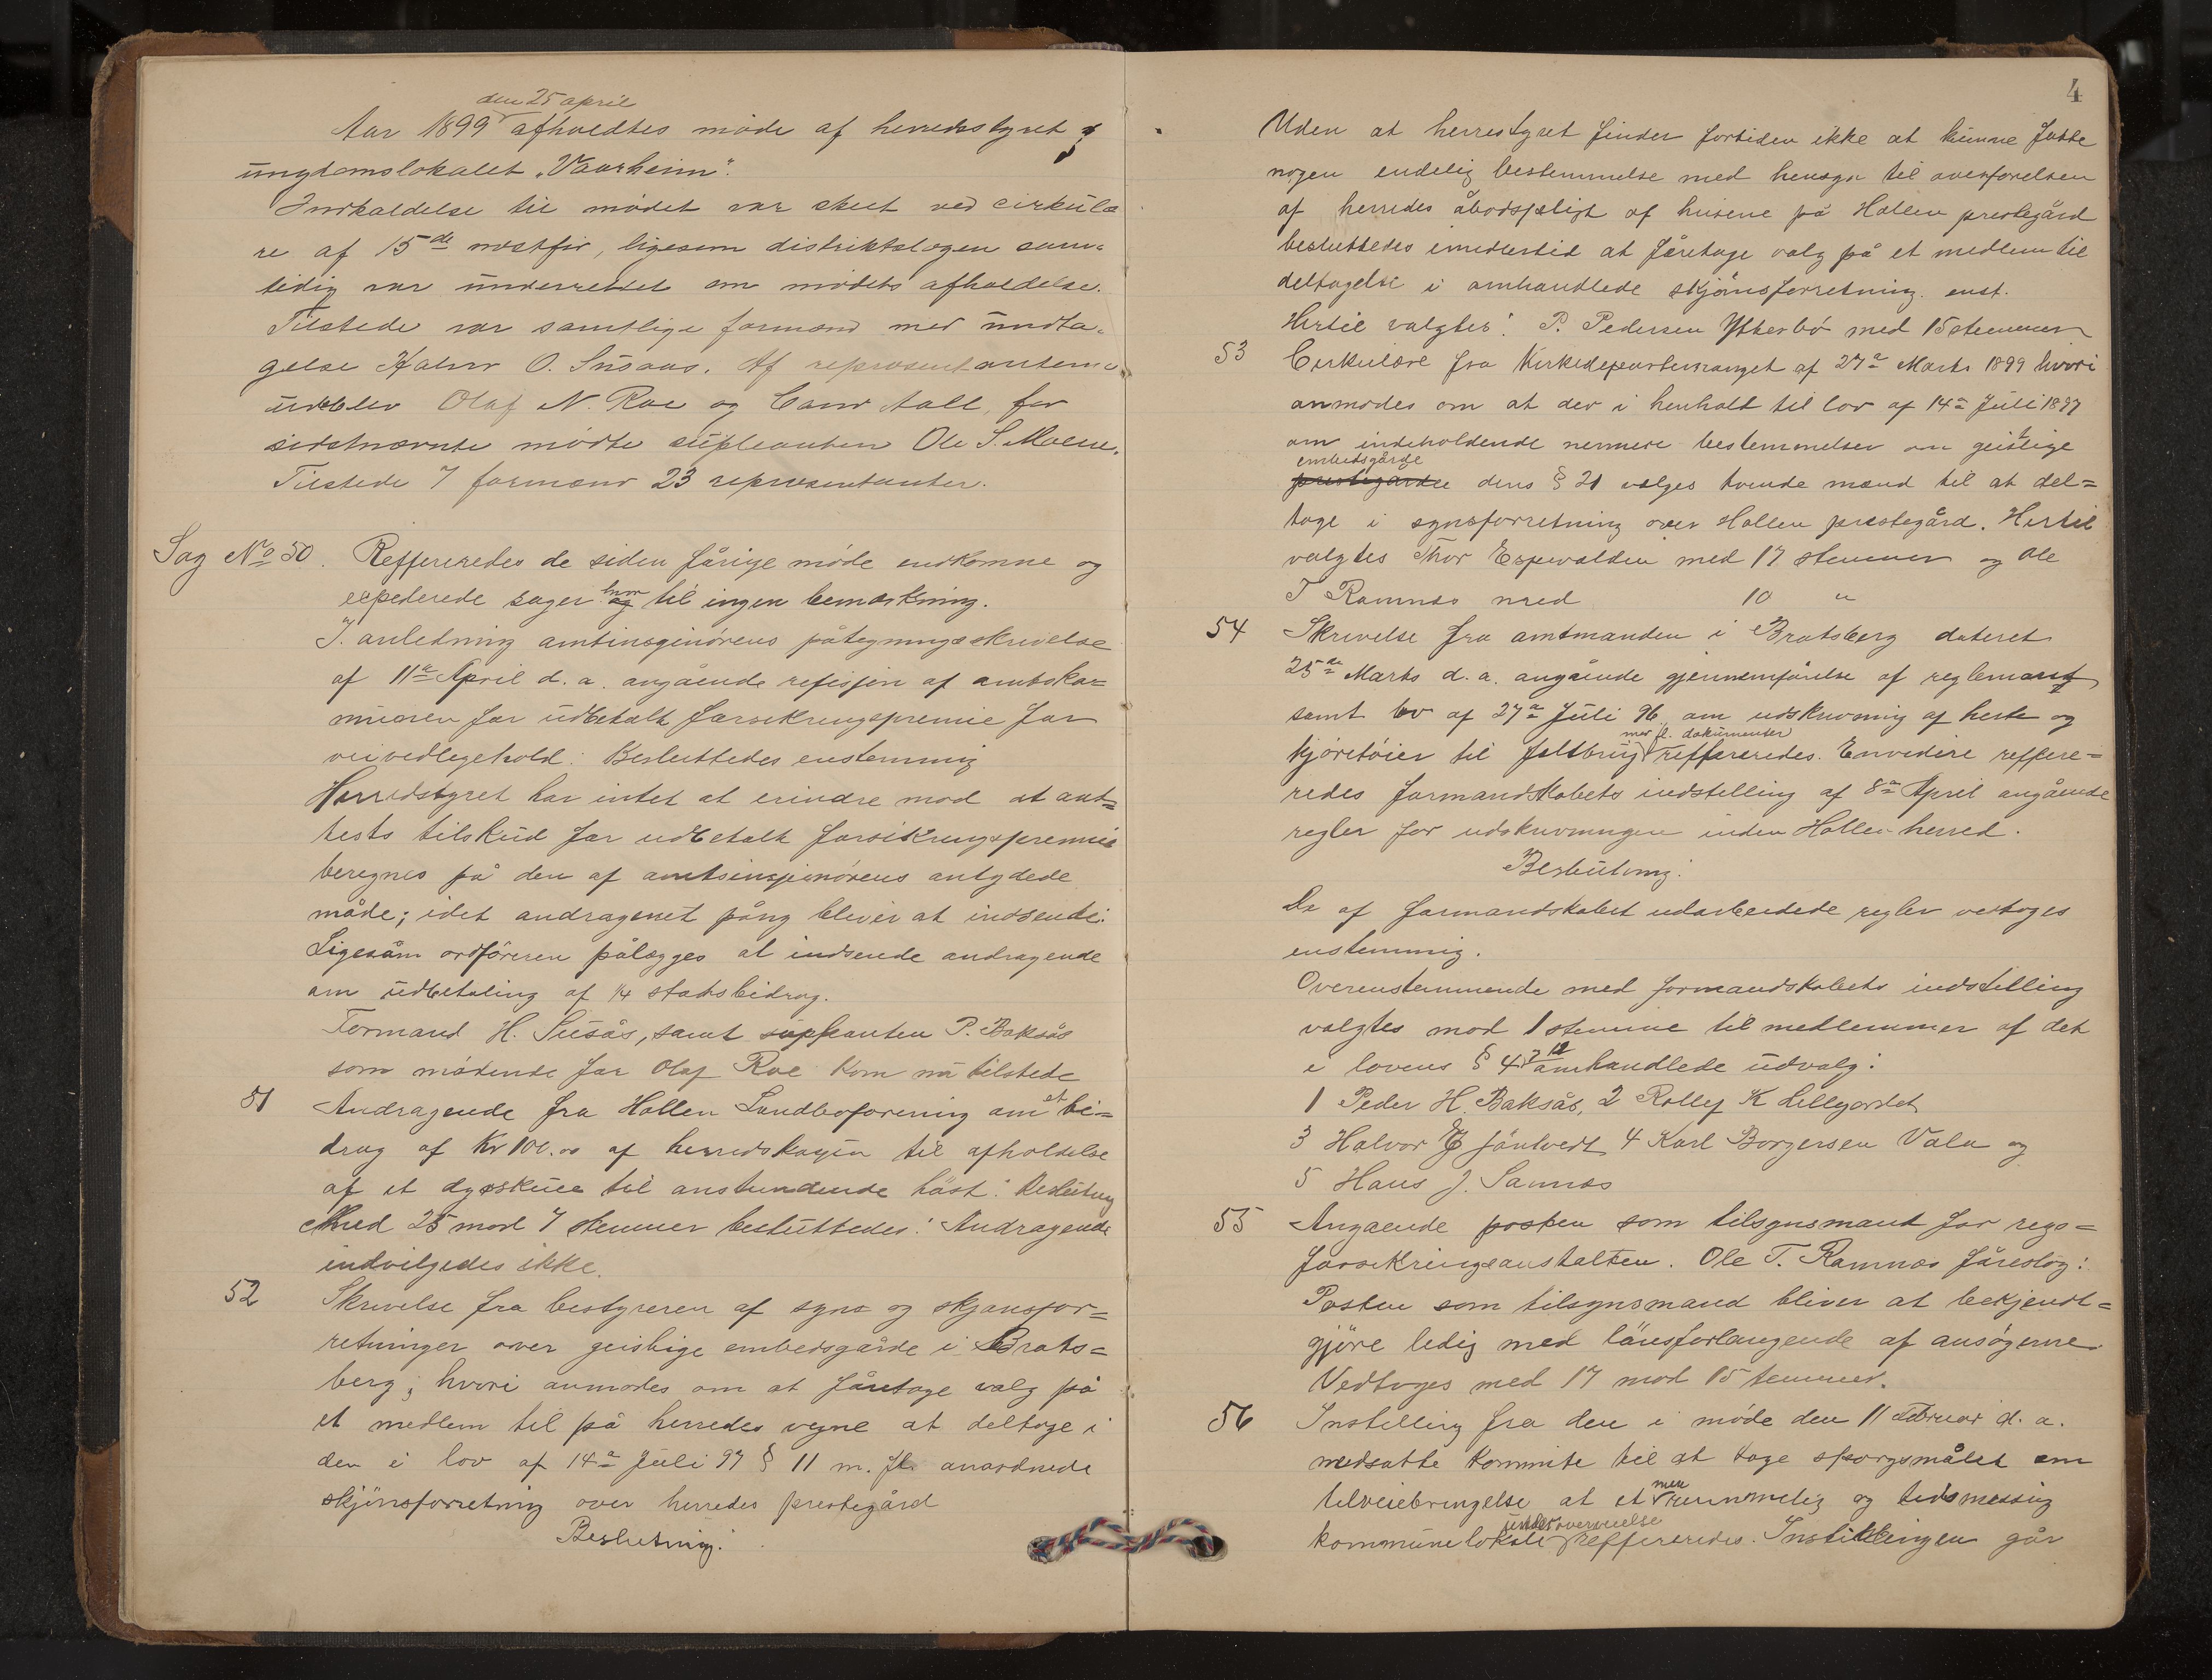 den 25 april
Aar 1899 afholdtes møde af herredsstyret i
ungdomslokalet „Vaarheim".
Indkaldelse til mødet var skeet ved cirkulæ
re af 15de næstfør, ligesom distriktslægen sam-
tidig var underrettet om mødets afholdelse.
Tilstede var samtlige formænd med undta-
gelse Halvor O. Susaas. Af repræsentanterne
udeblev Olaf N. Roe og Cand Aall, for
sidstnævnte mødte supleanten Ole S. Moene.
Tilstede 7 formænd 23 repræsentanter.
Sag No 50. Reffereredes de siden fårige møde indkomne og
expederede sager hvor til ingen bemærkning.
I anledning amtinsginørens påtegningsskrivelse
af 11te April d. a. angående refusjon af amtskom=
munen for udbetalt forsikringspremie for
veivedlegehold: Besluttedes enstemmig
Herredstyret har intet at erindre mod at amt=
tets tilskud for udbetalt forsikringspremie
beregnes på den af amtsinsjenørens antydede
måde; idet andragenet påny bliver at indsende.
Ligesåm ordføreren pålægges at indsende andragende
om udbetaling af 1/4 statsbidrag.
Formand H. Susås, samt supleanten P. Baksås
som mødende for Olaf Roe kom nu tilstede
51 Andragende fra Hollen Landboforening om et bi=
drag af Kr 100.00 af herredskassen til afholdelse
af et dyrskue til anstundende høst. Beslutning
Med 25 mod 7 stemmer besluttedes: Andragende
indvilgedes ikke.
52 Skrivelse fra bestyreren af syns og skjønsfor=
retninger over geistlige embedsgårde i Brats=
berg; hvori anmodes om at fåretage valg på
et medlem til på herredes vegne at deltage i
den i lov af 14de Juli 97 § 11 m. fl. anordnede
skjønsforretning over herredes prestegård
Beslutning:
4
Uden at herrestyret finder fortiden ikke at kunne fatte
nogen endelig bestemmelse med hensyn til overførelsen
af herredes åbodspligt af husene på Hollen prestegård
besluttedes imidlertid at fåretage valg på et medlem til
deltagelse i omhandlede skjønsforretning. enst.
Hertil valgtes: P. Pedersen Ytterbø med 15 stemmer
53 Cirkulære fra Kirkedepartemanget af 27de Marts 1899 hvori
anmodes om at der i henhold til lov af 14de Juli 1897
om indeholdende nermere bestemmelser om geistlige
embedsgårde
prestegårdee dens § 21 vælges tvende mænd til at del=
tage i synsforretning over Hollen prestegård. Hertil
valgtes Thor Espevalden med 17 stemmer og Ole
T Ramnæs med 10 "
54 Skrivelse fra amtmanden i Bratsberg dateret
25de Marts d. a. angående gjennemførelse af reglement
samt lov af 27de Juli 96 om udskrivning af heste og
med fl. dokumenter
kjøretøier til feltbrug reffereredes. Envidere reffere=
redes formandskabets indstilling af 8de April angående
regler for udskrivningen inden Hollen herred.
Beslutning:
De af formandskabet udarbeidede regler vedtoges
enstemmig.
Overenstemmende med formandskabets indstilling
valgtes mod 1 stemme til medlemmer af det
i lovens § 4 omhandlede udvalg:
1 Peder H. Baksås, 2 Rollef K Lillegordet
3 Halvor E Jåntvedt 4 Karl Borgersen Vala og
5 Hans J. Sannæs
55 Angaende posten som tilsynsmand for regs=
forsikringsanstalten. Ole T. Ramnæs føreslog:
Posten som tilsynsmand bliver at bekjendt=
gjøre ledig med lønsforlangende af ansøgerne.
Vedtoges med 17 mod 15 temmer.
56 Instelling fra den i møde den 11 Februar d. a.
nedsatte kommite til at tage spørgsmålet om
tilveiebringelse at et mer rummelig og tidsmessig
under overveielse
kommunelokale reffereredes. Instillingen går